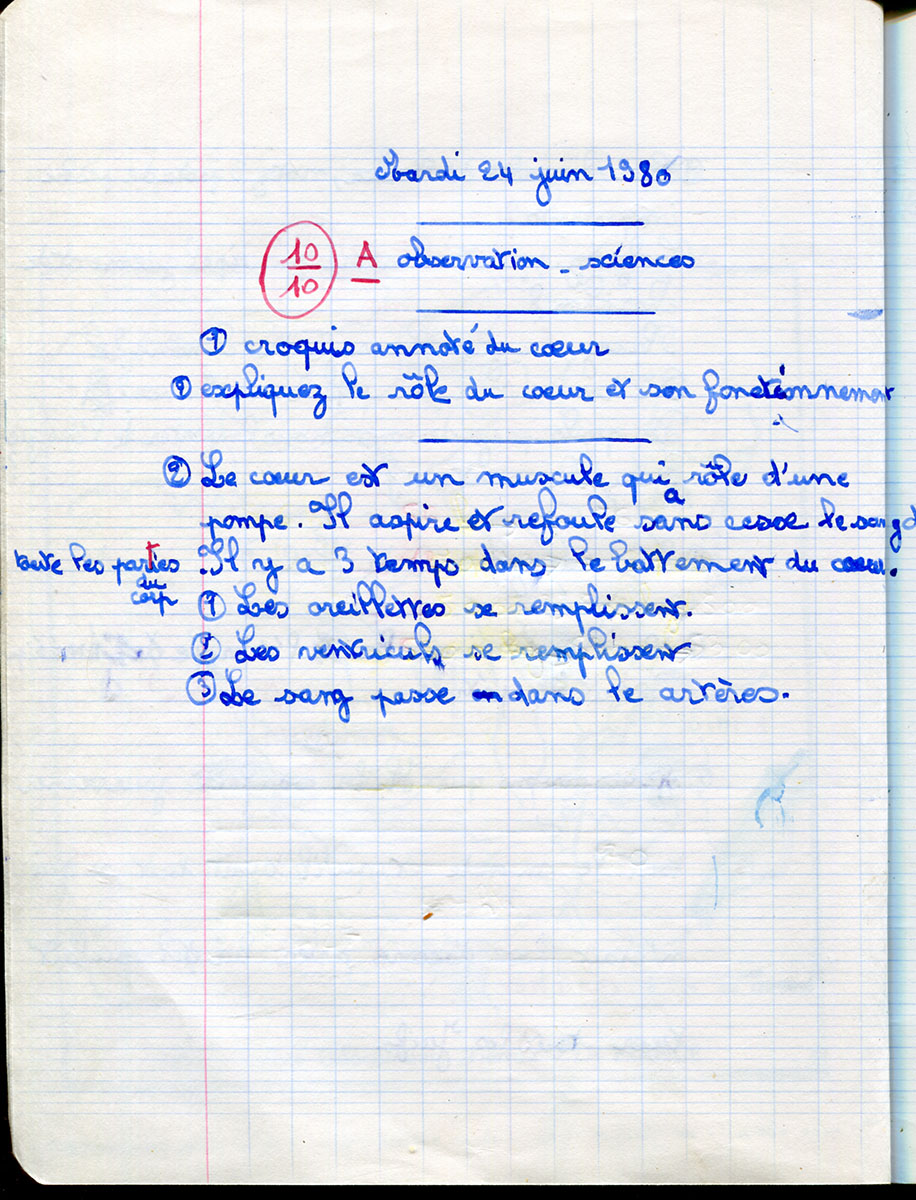 Mardi 24 juin 1980
10/10 A observation - sciences
① croquis annoté du cœur
② expliquez le rôle du cœur et son fonctionnement
② Le cœur est un muscule qui a rôle d'une
pompe. Il aspire et refoule sans cesse le sang d
toute les parties du corp . Il y a 3 temps dans le battement du cœur.
① Les oreillettes se remplissent.
② Les ventriculs se remplissent
③ Le sang passe dans le artères.